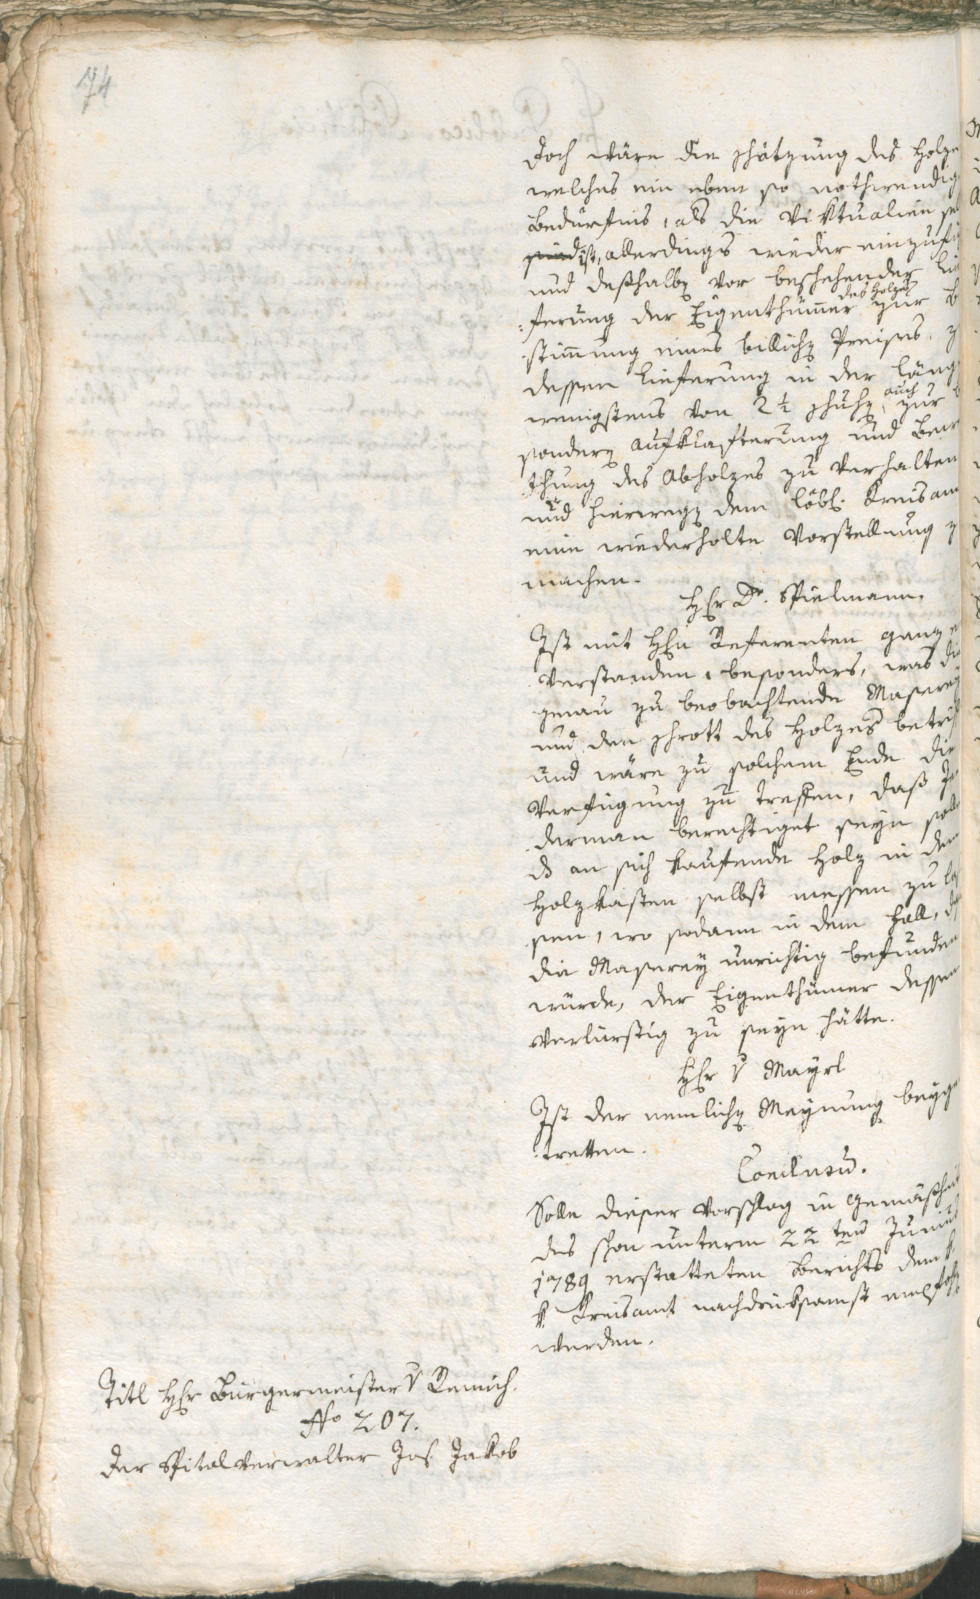 74
Doch wäre die schätzung des Holze
welches ein eben so nothwendig
bedürfnis, als die Viktualien se
sind ist, allerdings wieder einzufü
und deßhalbẽ vor beschehender Lie
:ferung der Eigenthümer des Holzes zur b
:stimung eines billichẽ Preises, z
dessen Lieferung in der Läng
wenigstens von 2½ schuhẽ, auch zur b
sonderẽ aufklafterung und Bewer
:thung des Abholzes zu verhalten
und hierwegẽ dem löbl. Kreisam
eine wiederholte Vorstellung z
machen.
Hr Dr. Spielmann.
Ist mit Hrn Referenten ganz e
verstanden, besonders, was die
genau zu beobachtende Maserey
und den schrott des Holzes betrif
und wäre zu solchem Ende die
Verfügung zu treffen, daß Je
derman berechtiget seyn solle
ds an sich kaufende Holz in dem
Holzkasten selbst messen zu las
sen, wo sodann in dem Fall, ds
die Maserey unrichtig befunden
würde, der Eigenthümer dessen
verlurstig zu seyn hätte.
Hr v Mayrl
Ist der nemlichẽ Meynung beyge
:tretten.
Conclusũ.
Solle dieser Vorschlag in gemäßheit
des schon unterm 22ten Junius
1789 erstatteten Berichts dem k.
k Kreisamt nachdruksamst empfohlẽ
werden.
Titl Hr Bürgermeister v Remich.
No 207.
Der Spitalverwalter Jos. Jakob